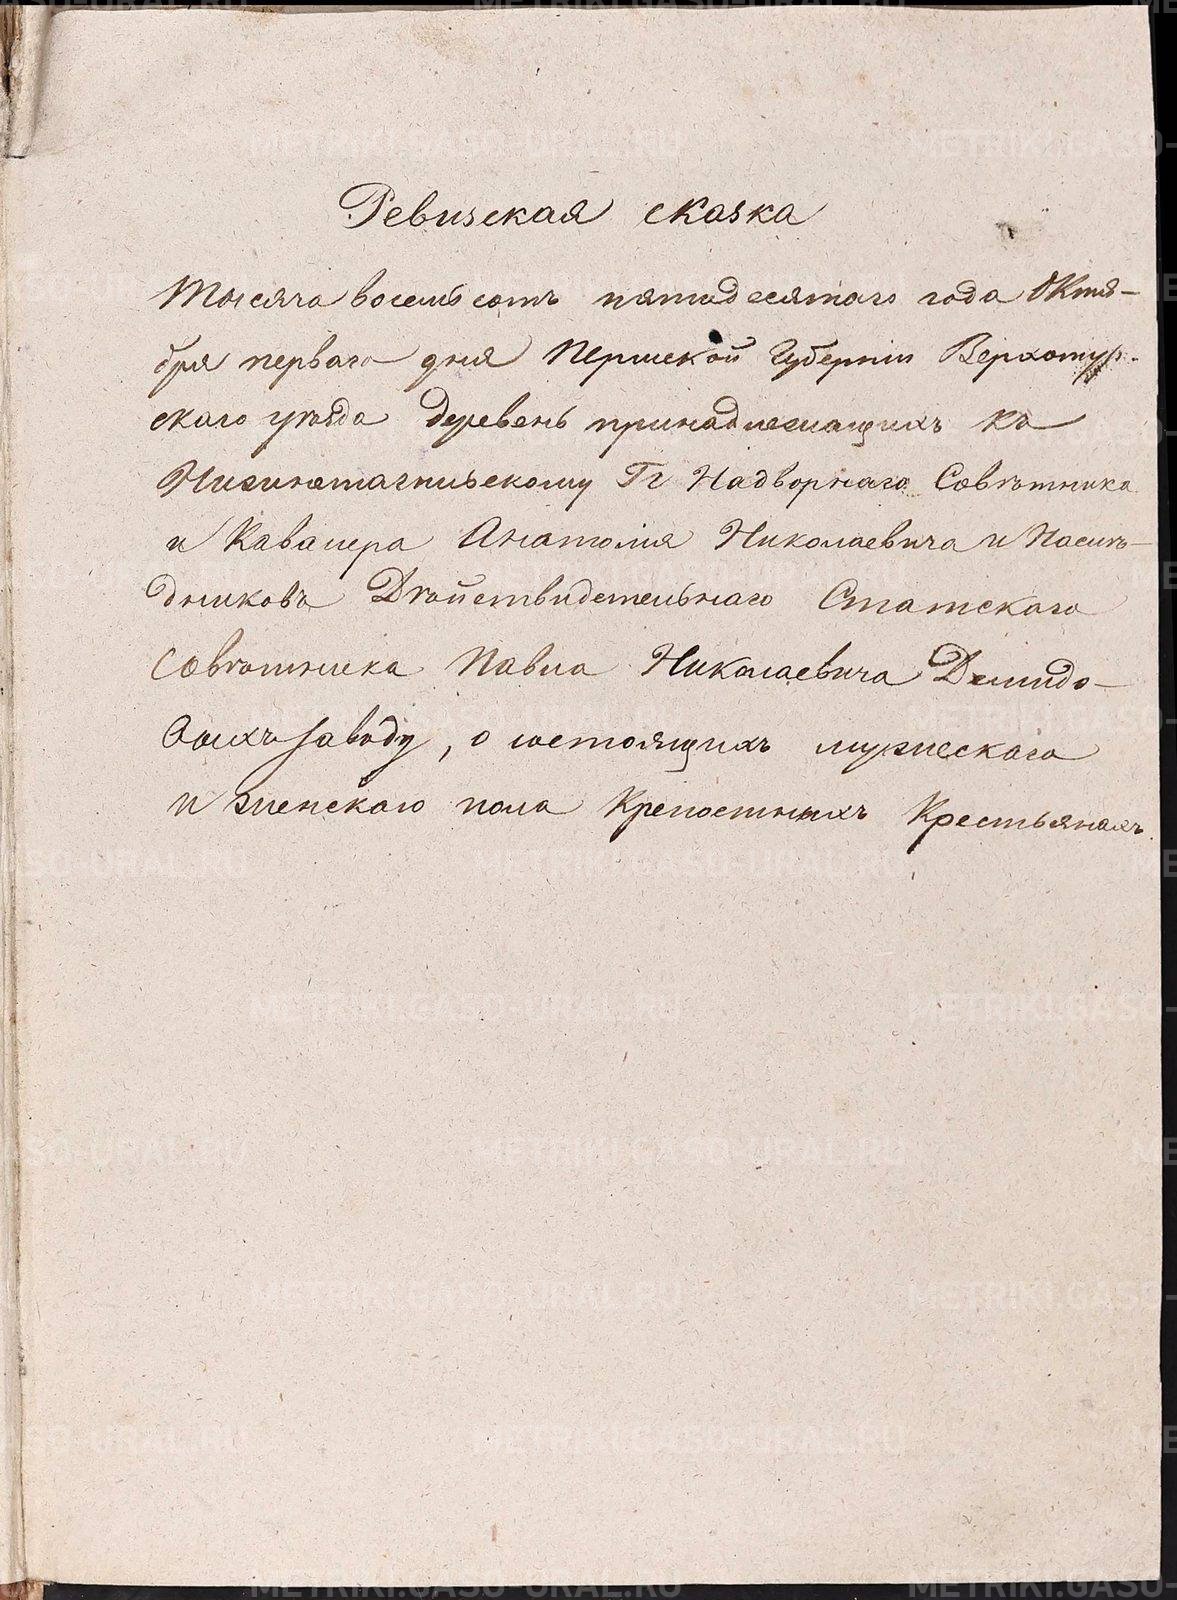 Ревизская сказка
Тысяча восемь сотъ пятидесятаго года Октя-
бря перваго дня Пермской Губерніи Верхотур-
скаго уѣзда деревень принадлежащихъ къ
Нижнетагильскому Гг Надворнаго Совѣтника
и Кавалера Анатолія Николаевича и Наслѣ-
дниковъ Дѣйствидетельнаго Статскаго
Совѣтника Павла Николаевича Демидо-
выхъ заводу, о состоящихъ мужескаго
и женскаго пола Крепостныхъ Крестьянахъ.
METRIKI.GASO-URAL.RU